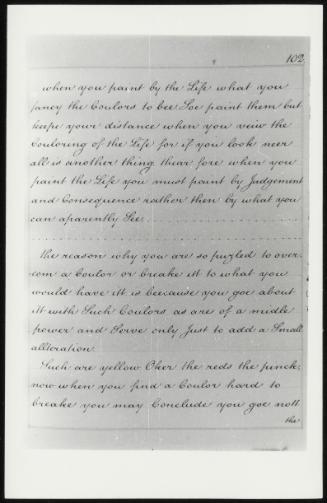 102
when you paint by the Life what you
fancy the Coulors to bee Soe paint them but
keepe your distance when you veiw the
Couloring of the Life for if you look neer
all is another thing thear fore when you
paint the Life you must paint by Judgement
and Consequence rather then by what you
can aparently See
the reason why you are so puzled to over
com a Coulor or breake itt to what you
would have itt is becuause you goe about
itt with Such Coulors as are of a midle
power and Serve only Just to add a Small
allteration.
Such are yellow Oker the reds the pinck,
now when you find a Coulor hard to
breake you may Conclude you goe nott
the